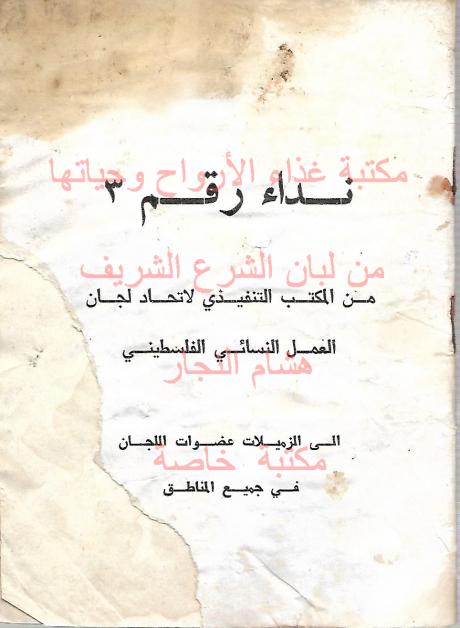 مكتبة غذاء الأرواح وحياتها
نداء رقم ٣
من لبان الشرع الشريف
من المكتب التنفيذي لاتحاد لجان
العمل النسائي الفلسطيني
هشام النجار
الى الزميلات عضوات اللجان
مكتبة خاصة
في جميع المناطق